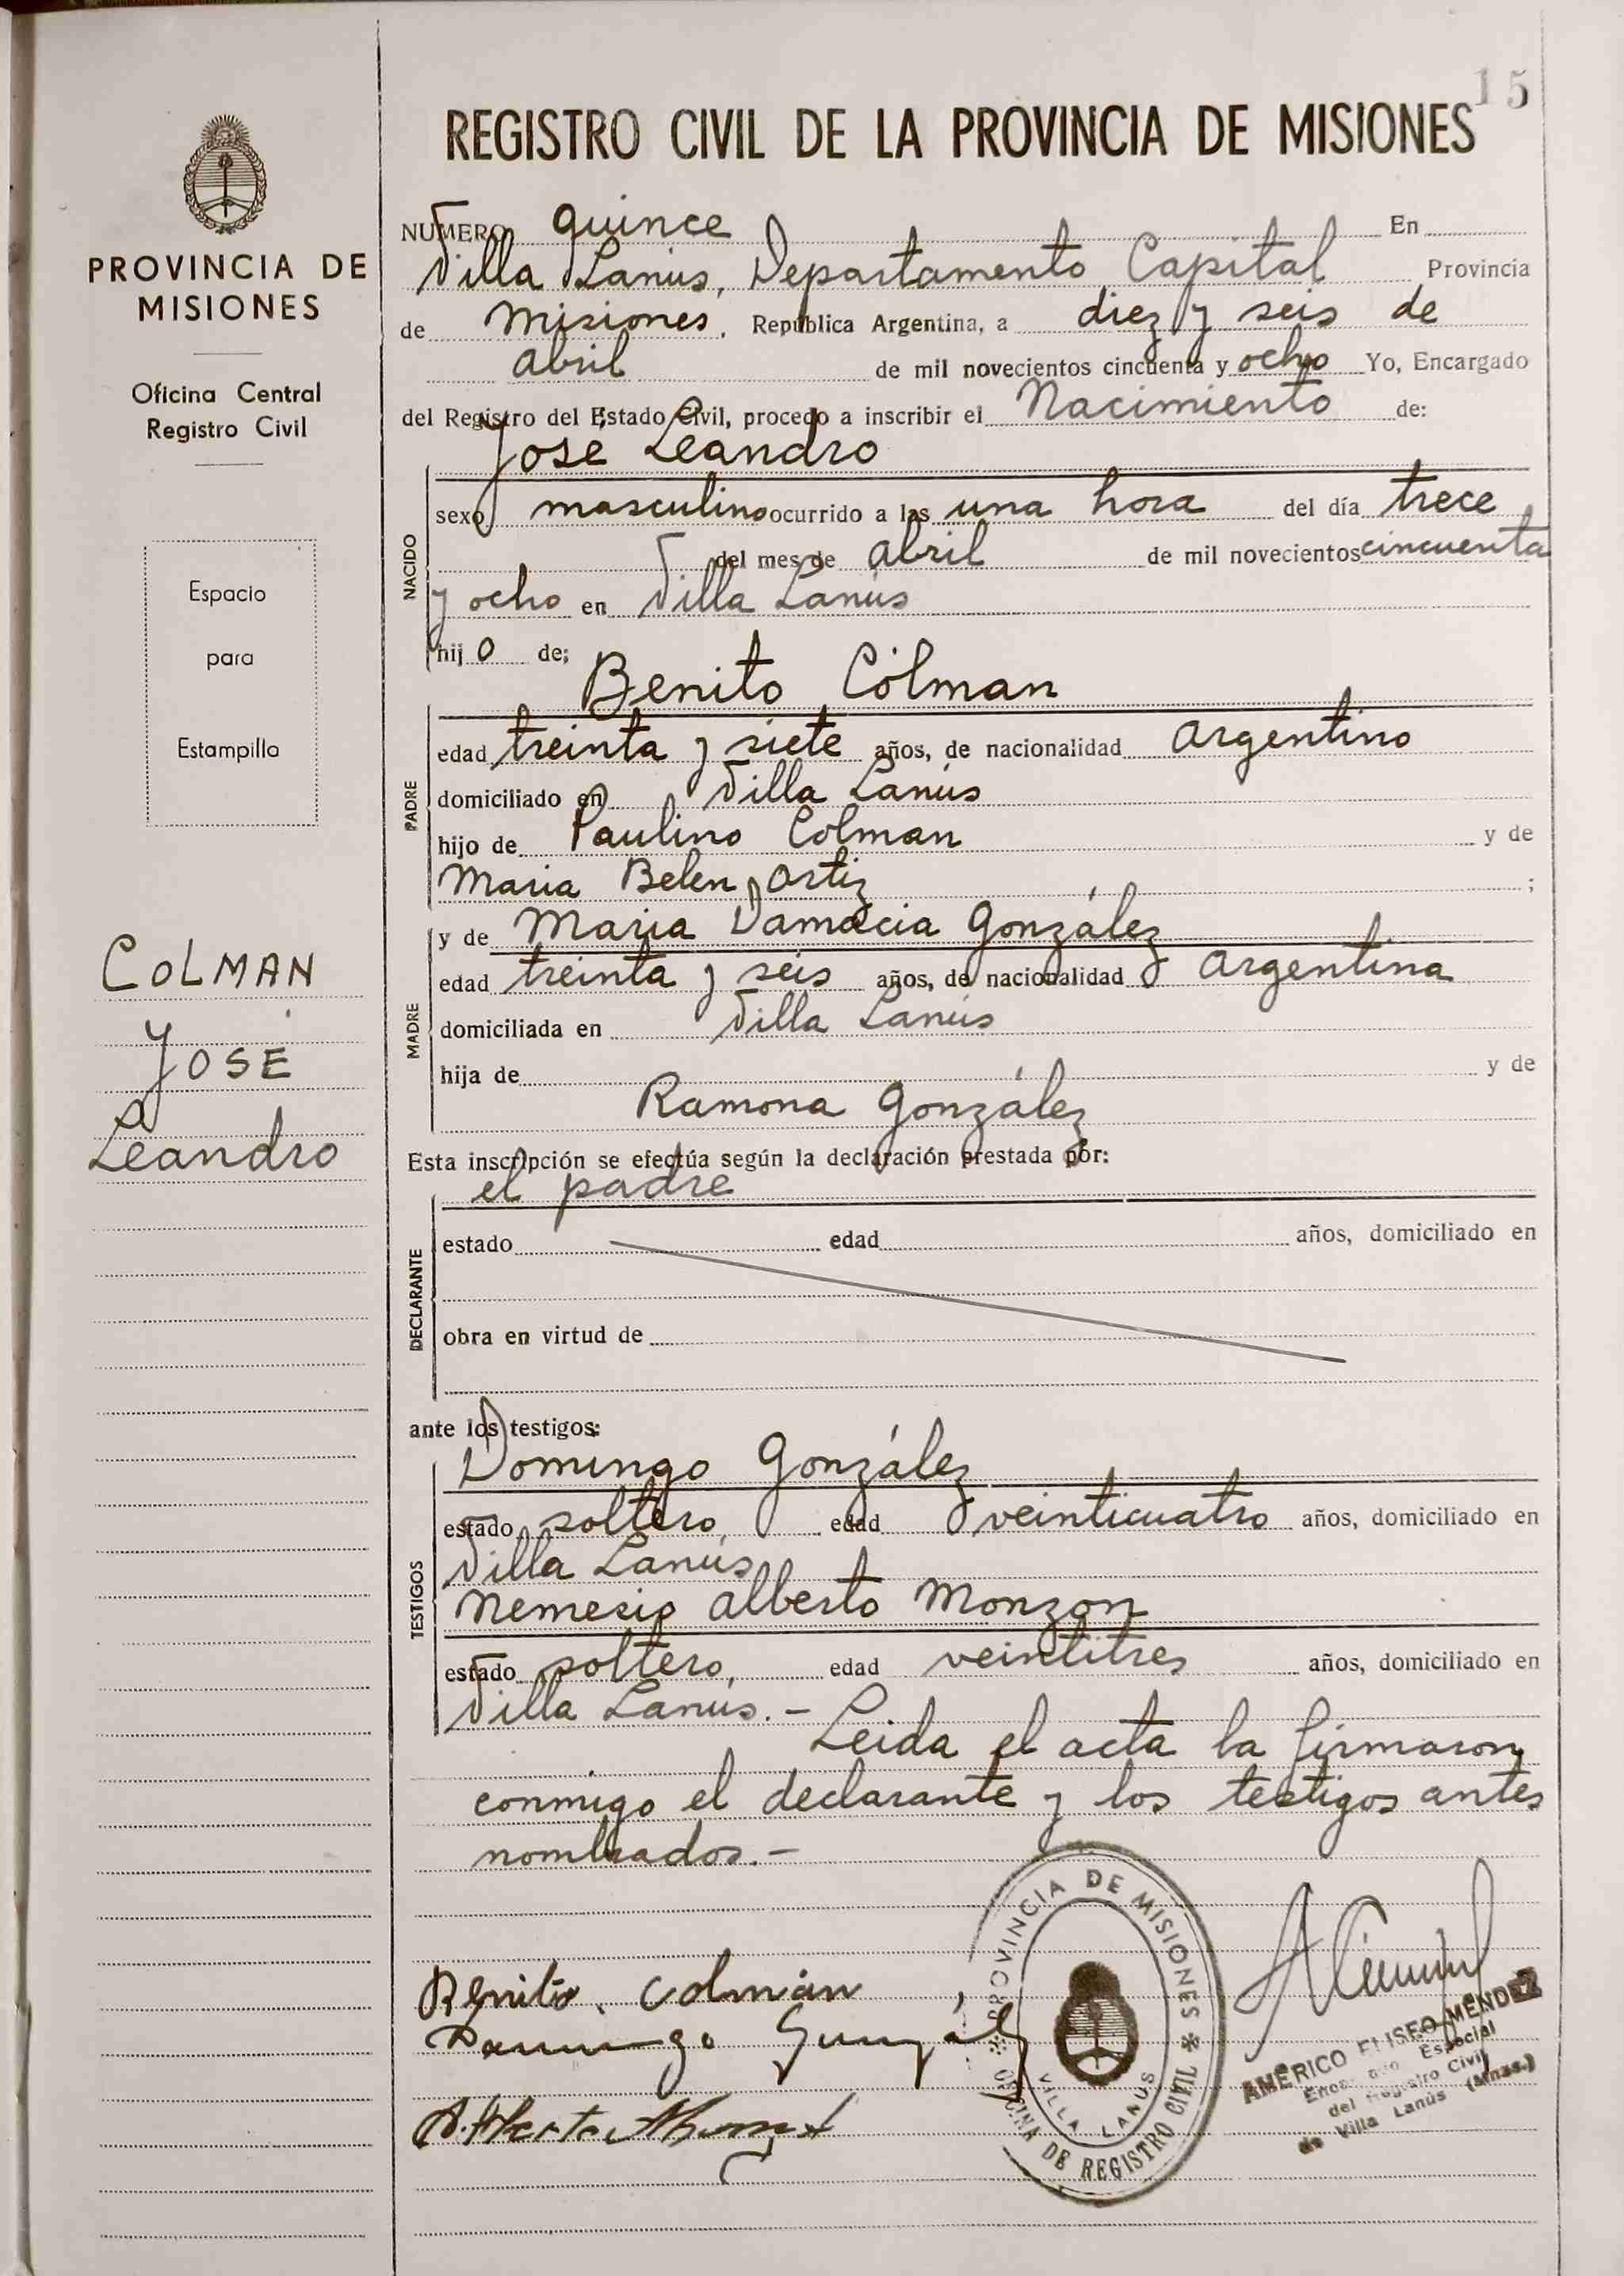 15
REGISTRO CIVIL DE LA PROVINCIA DE MISIONES
PROVINCIA DE
MISIONES
Oficina Central
Registro Civil
Espacio
para
Estampilla
COLMAN
JOSÉ
Leandro
NUMERO quince En
Villa Lanús, Departamento Capital Provincia
de Misiones, República Argentina, a diez y seis de
abril de mil novecientos cincuenta y ocho Yo, Encargado
del Registro del Estado Civil, procedo a inscribir el Nacimiento de:
José Leandro
NACIDO
sexo masculino ocurrido a las una hora del día trece
del mes de abril de mil novecientos cincuenta
y ocho en Villa Lanús
hij o de;
Benito Cólman
PADRE
edad treinta y siete años, de nacionalidad Argentino
domiciliado en Villa Lanús
hijo de Paulino Colman y de
Maria Belen Ortiz ;
MADRE
y de Maria Damacia González
edad treinta y seis años, de nacionalidad Argentina
domiciliada en Villa Lanús
hija de y de
Ramona González
Esta inscripción se efectúa según la declaración prestada por:
el padre
DECLARANTE
estado edad años, domiciliado en
obra en virtud de
ante los testigos:
Domingo González
TESTIGOS
estado soltero, edad veinticuatro años, domiciliado en
Villa Lanús
Nemesio Alberto Monzon
estado soltero, edad veintitres años, domiciliado en
Villa Lanús.- Leida el acta la firmaron
conmigo el declarante y los testigos antes
nombrados.-
Benito. Colmán
Domingo González
PROVINCIA DE MISIONES
OFICINA DE REGISTRO CIVIL
VILLA LANUS
AMÉRICO ELISEO MÉNDEZ
Encargado Especial
del Registro Civil
de Villa Lanús (Mnes.)